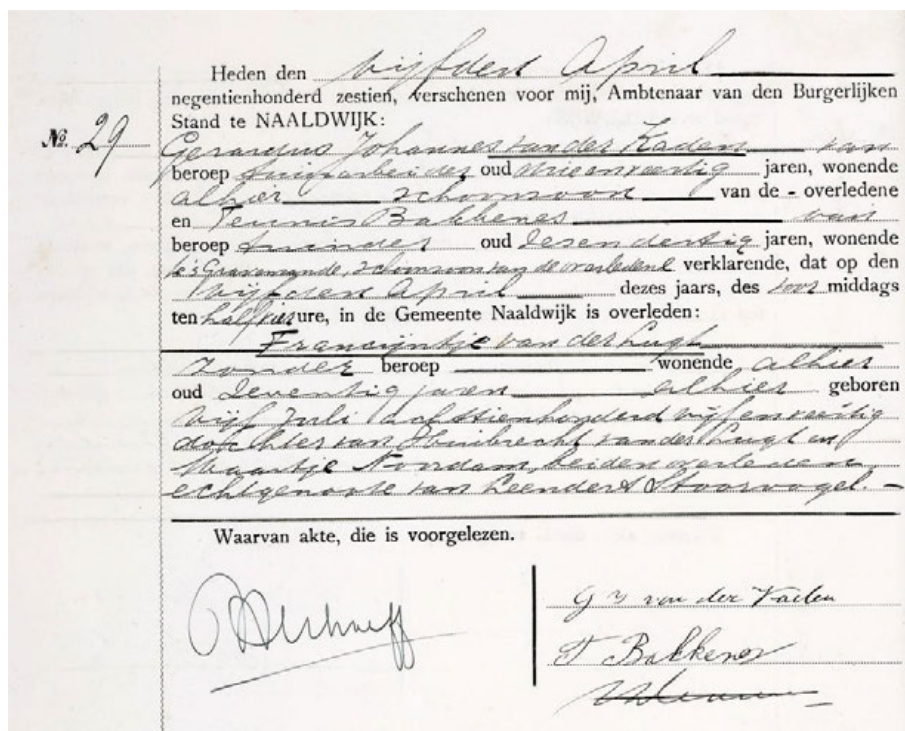 Heden den vijfden April
negentienhonderd zestien, verschenen voor mij, Ambtenaar van den Burgerlijken
Stand te NAALDWIJK:
No. 29
Gerardus Johannes van der Kaden van
beroep tuinarbeider oud drieenveertig jaren, wonende
alhier schoonzoon van de - overledene
en Teunis Bakkenes van
beroep tuinder oud zesendertig jaren, wonende
te 's Gravenzande, schoonzoon van de overledene verklarende, dat op den
vijfden April dezes jaars, des voor middags
ten half ure, in de Gemeente Naaldwijk is overleden:
Francijntje van der Lugt
zonder beroep wonende alhier
oud zeventig jaren alhier geboren
vijf Juli achttienhonderd vijfenveertig
dochter van Huibrecht van der Lugt en
Maartje Noordam, beiden overleden
echtgenoote van Leendert Stoorvogel. -
Waarvan akte, die is voorgelezen.
G J van der Kaden
T Bakkenes